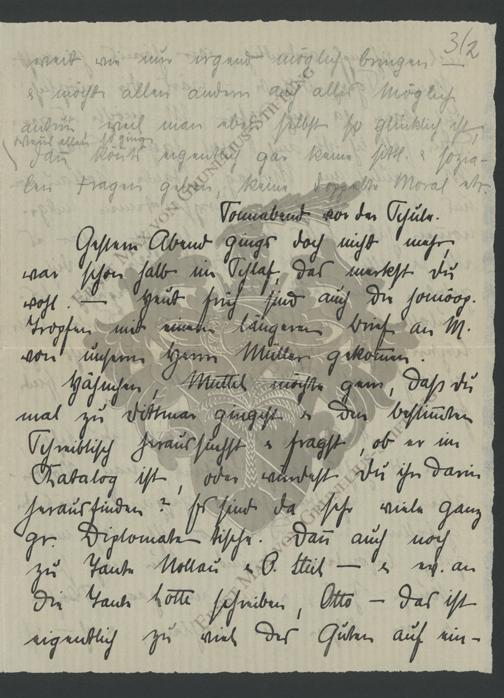 3/2
weit wie nur irgend möglich bringen
& möcht allen andern auch alles Möglich
antun weil man eben selbst so glücklich ist,
wenns allen so ging
dann könnt eigentlich gar keine sittl. & sozia-
len Fragen geben, keine doppelte Moral etc.
Sonnabend vor der Schule.
Gestern Abend gings doch nicht mehr,
war schon halb im Schlaf, das merkst Du
wohl. — Heut früh sind auch die homöop.
Tropfen mit einem längeren Brief an M.
von unserm Herrn Müller gekommen.
Hähnchen, Muttel möchte gern, daß Du
mal zu Dittmar gingst & den bestimmten
Schreibtisch heraussuchst & fragst, ob er im
Katalog ist, oder würdest Du ihn darin
herausfinden? Es sind da sehr viele ganz
gr. Diplomatentische. Dann auch noch
zu Tante Mollau & P. — & ev. an
die Tante Lotte schreiben, Otto — das ist
eigentlich zu viel des Guten auf ein-
MAX VON GRUNELIUS-STIFTUNG